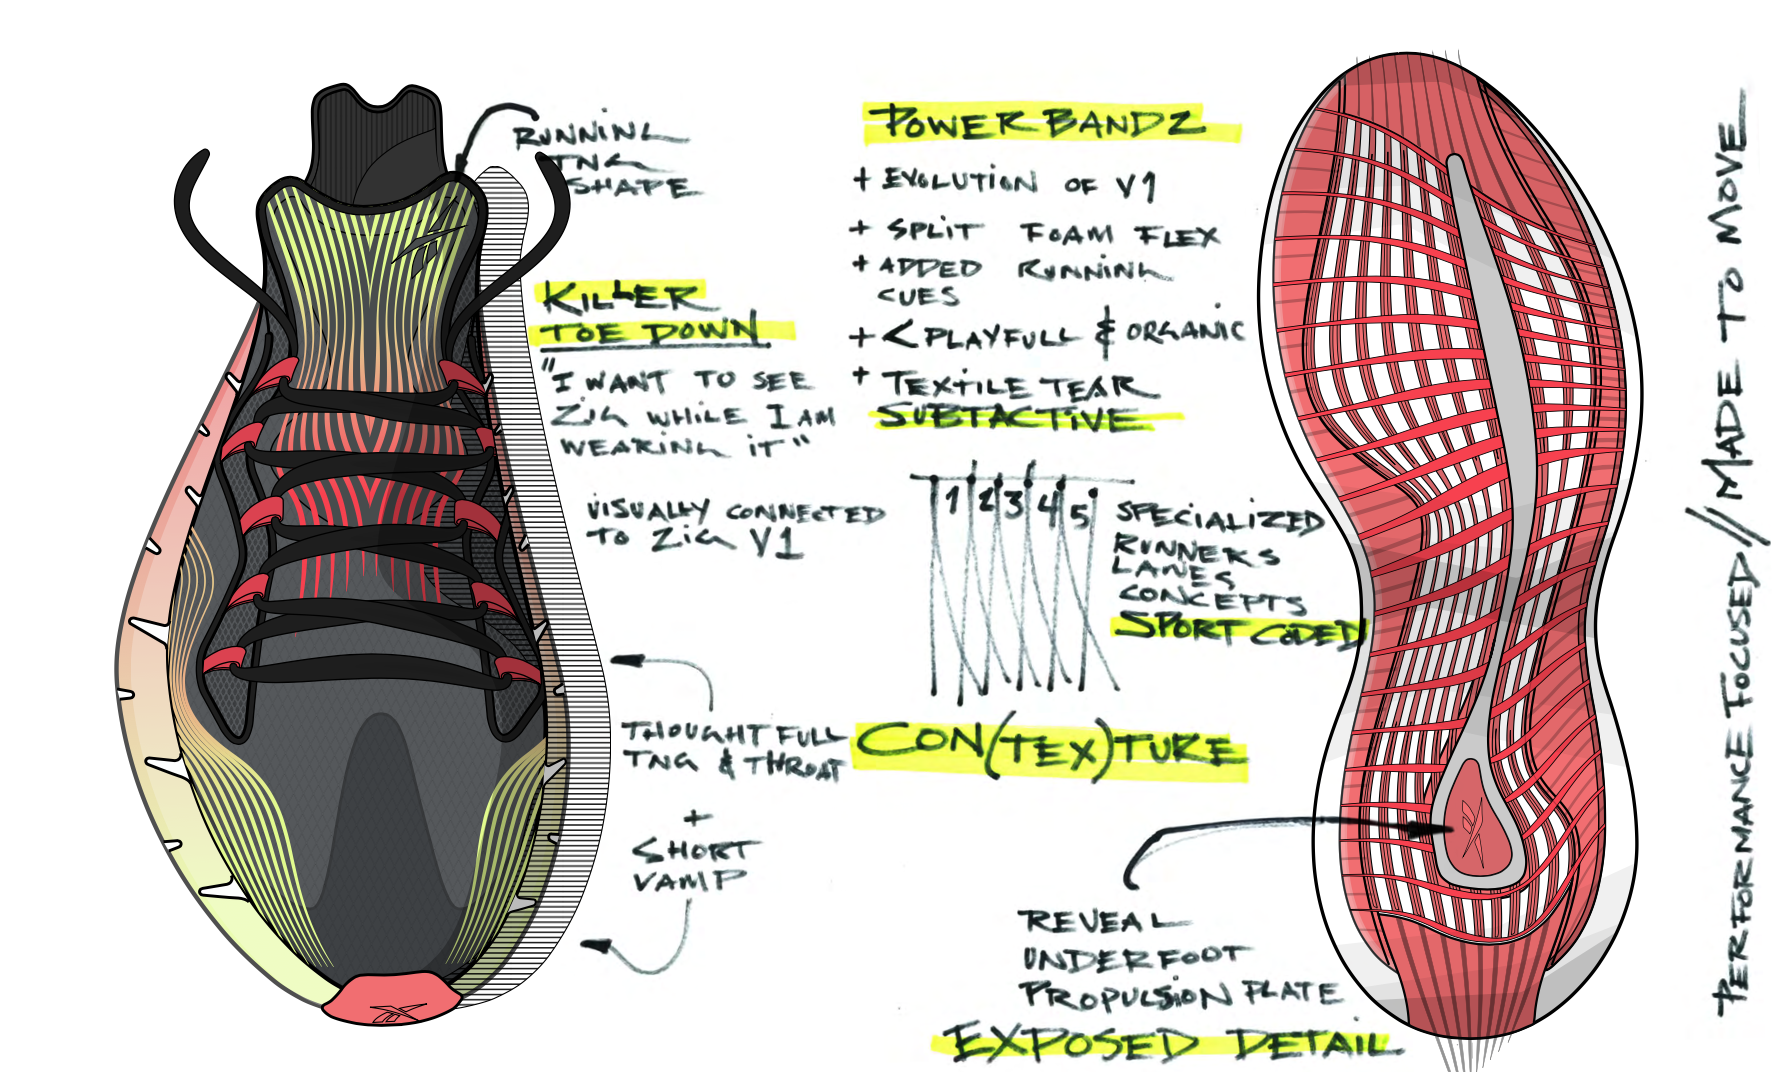 RUNNING
TNG
SHAPE
KILLER
TOE DOWN
"I WANT TO SEE
ZIG WHILE I AM
WEARING iT"
VISUALLY CONNECTED
TO ZiG V1
THOUGHTFULL
TNG & THROAT
+
SHORT
VAMP
POWER BANDZ
+ EVOLUTION OF V1
+ SPLIT FOAM FLEX
+ ADDED RUNNING
CUES
+ < PLAYFULL & ORGANIC
+ TEXTILE TEAR
SUBTACTIVE
1 2 3 4 5
SPECIALIZED
RUNNERS
LANES
CONCEPTS
SPORT CODED
CON(TEX)TURE
REVEAL
UNDERFOOT
PROPULSION PLATE
EXPOSED DETAIL
PERFORMANCE FOCUSED // MADE TO MOVE